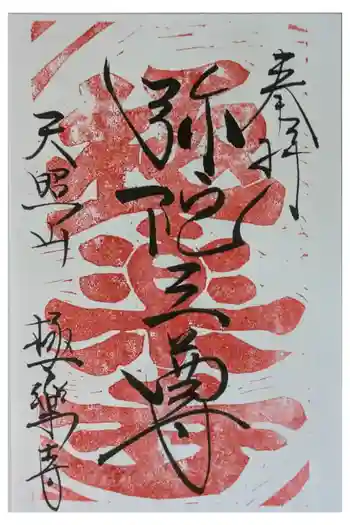 奉拝
弥陀三尊
天照山
極楽寺